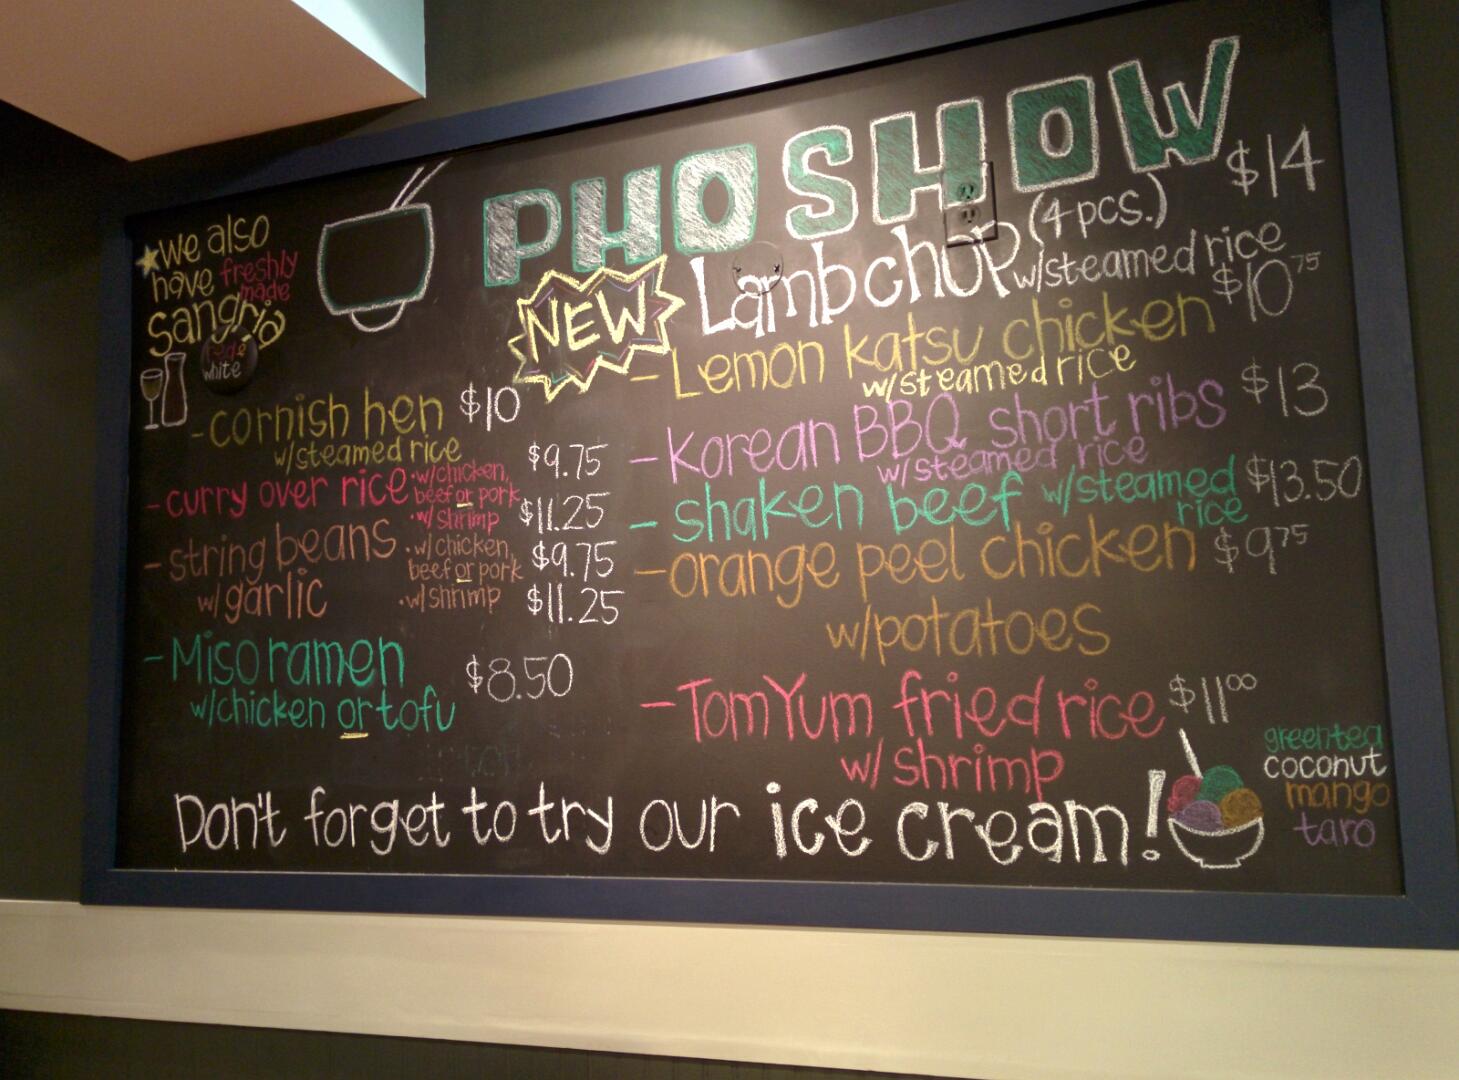 PHO SHOW
★we also
have freshly
made
sangria
red &
white
NEW Lambchop (4 pcs.) $14
w/steamed rice
- Lemon katsu chicken $10 75
w/steamed rice
- Korean BBQ short ribs $13
w/steamed rice
- shaken beef w/steamed $13.50
rice
- orange peel chicken $9 75
w/potatoes
- Tom Yum fried rice $11 00
w/ shrimp
- cornish hen $10
w/steamed rice
- curry over rice • w/chicken, $9.75
beef or pork
• w/ shrimp $11.25
- string beans • w/chicken, $9.75
w/ garlic beef or pork
• w/ shrimp $11.25
- Miso ramen $8.50
w/chicken or tofu
Don't forget to try our ice cream!
green tea
coconut
mango
taro